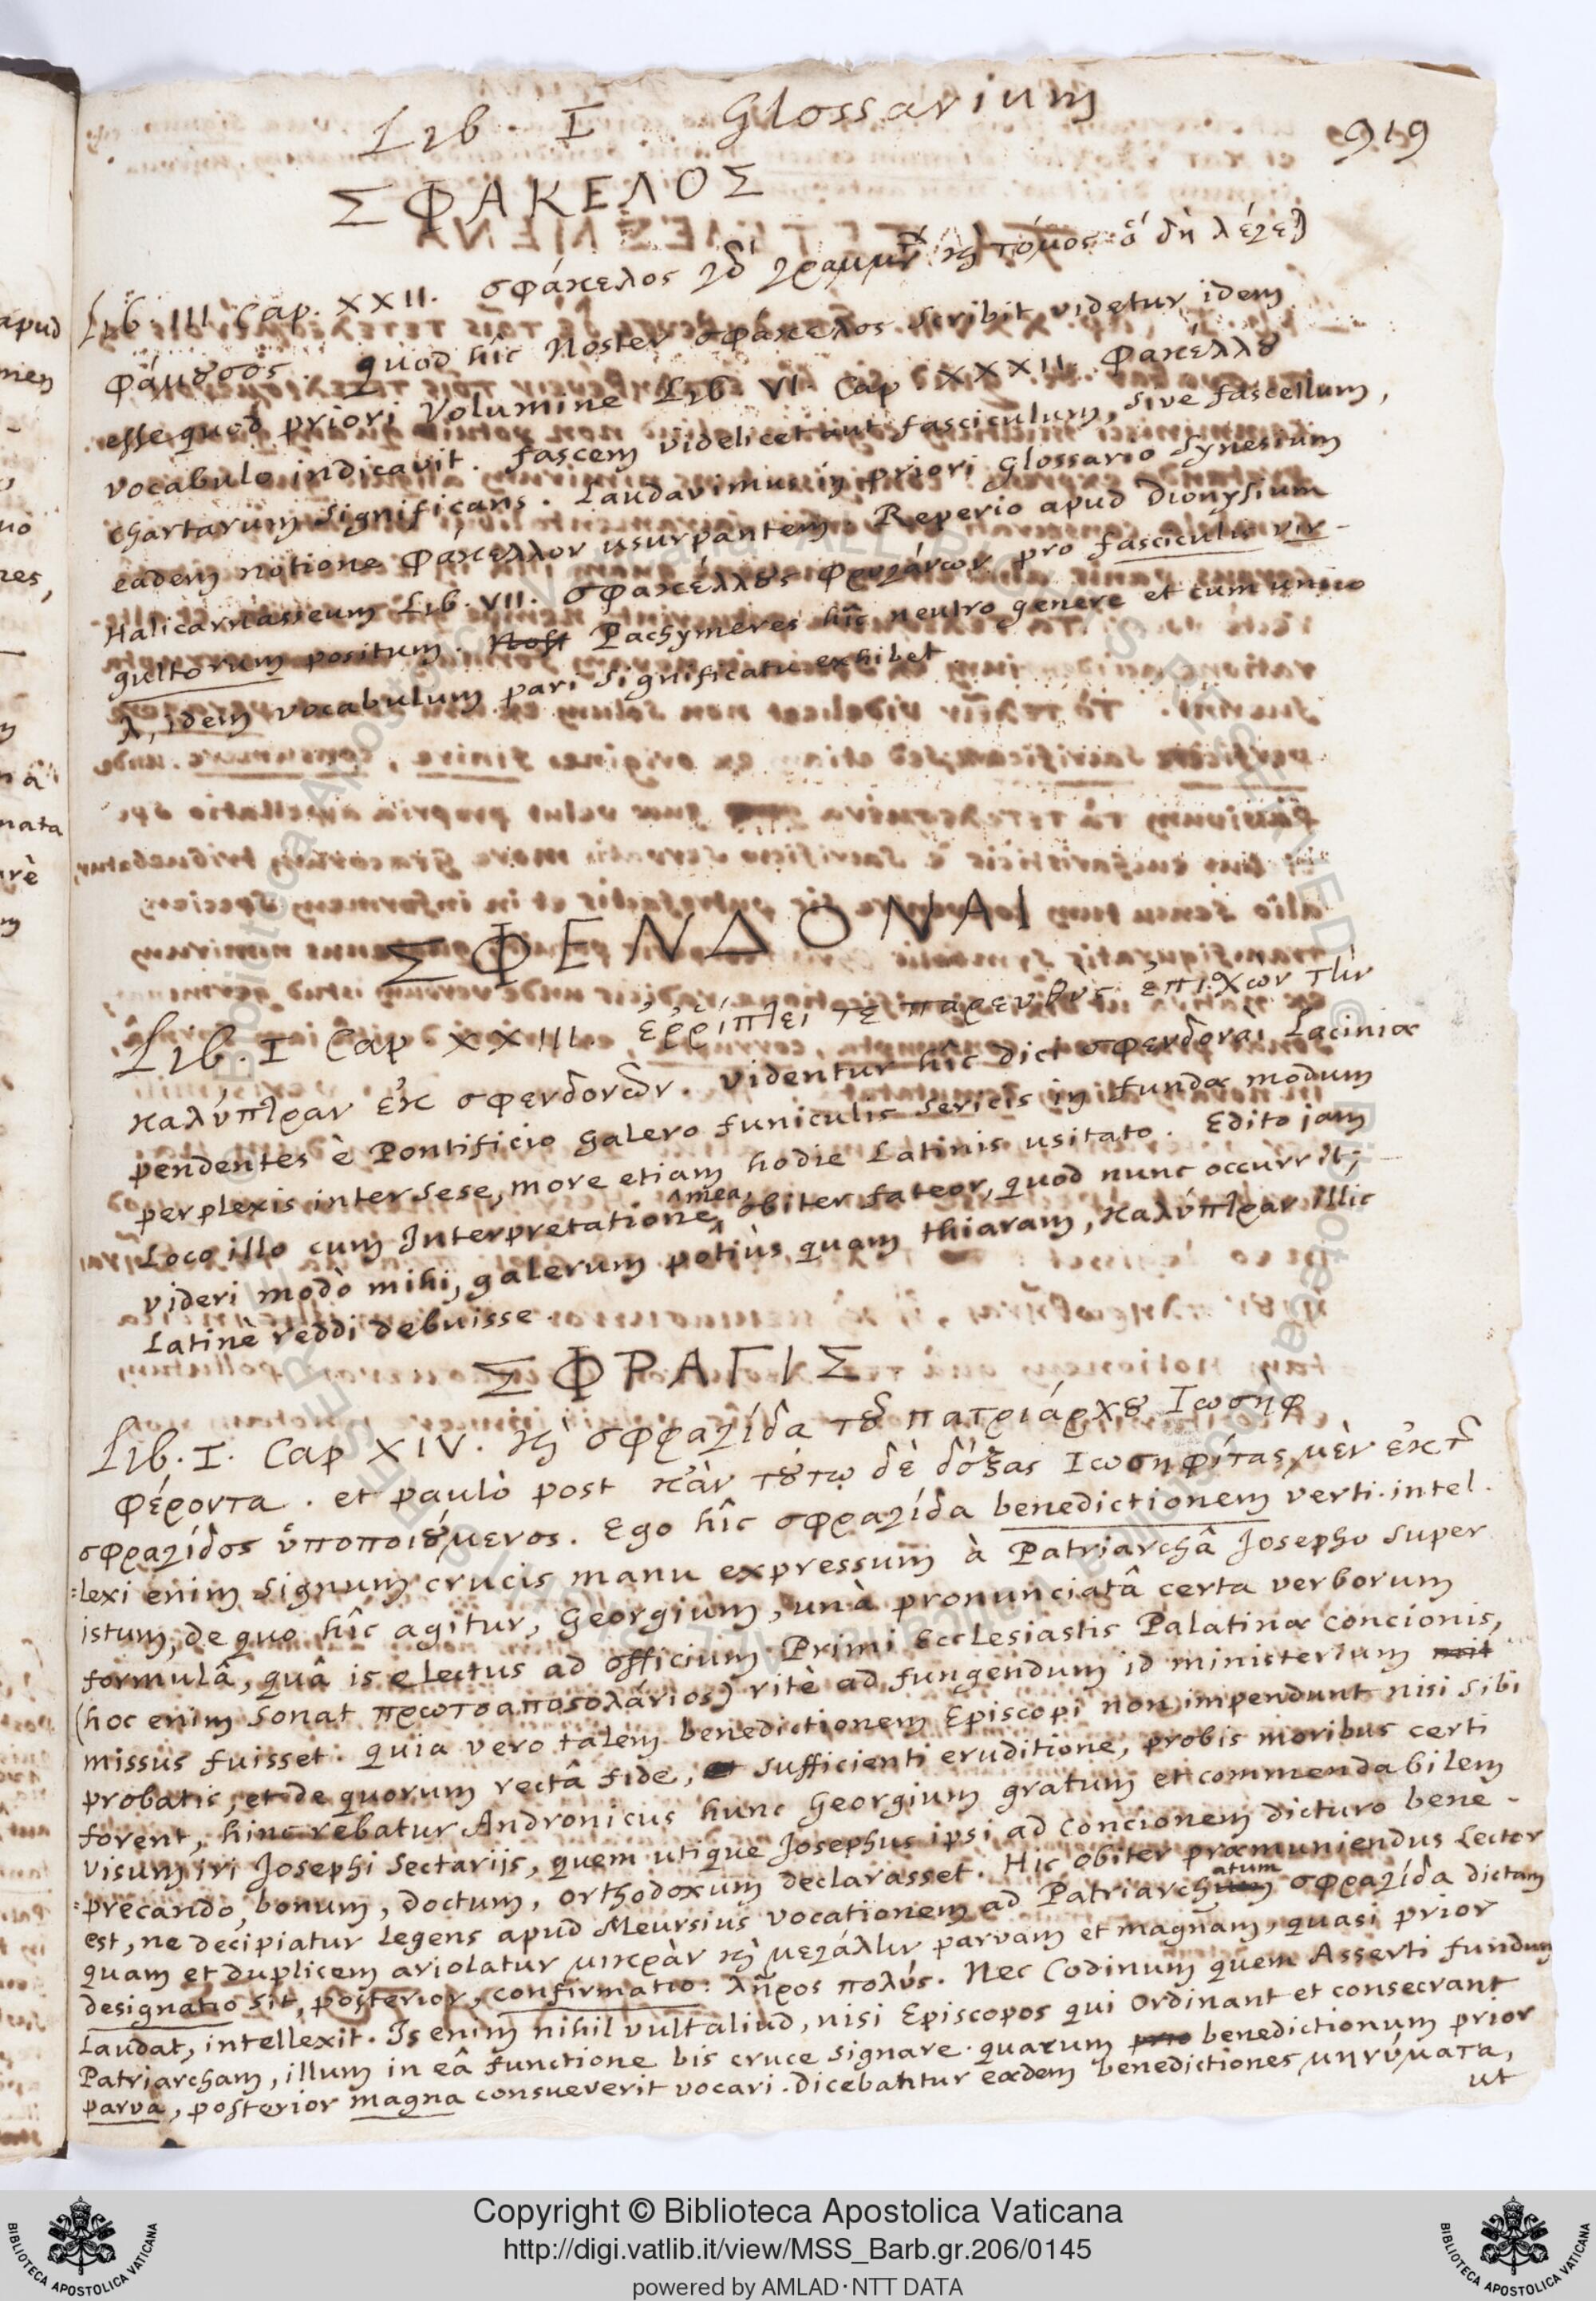 Lib. I Glossarium 919
ΣΦΑΚΕΛΟΣ
Lib. III Cap. XXII. σφάκελος καὶ τόμος ὃ δὴ λέγεται
φάμουσος. quod hîc Noster σφάκελος scribit videtur idem
esse quod priori Volumine Lib. VI. Cap XXXII. φακέλλȣ
vocabulo indicavit. fascem videlicet aut fasciculum, sive fascellum,
chartarum significans. Laudavimus in priori Glossario Synesium
eadem notione φάκελλον usurpantem. Reperio apud Dionysium
Halicarnasseum Lib. VII. σφακέλλȣς φρυγάνων pro fasciculis vir-
gultorum positum. Nost Pachymeres hîc neutro genere et cum unico
λ, idem vocabulum pari significatu exhibet.
ΣΦΕΝΔΟΝΑΙ
Lib. I Cap. XXIII. ἐῤῥίπτει τε παρευθὺς ἐπέχων τὴν
καλύπτραν ἐκ σφενδονῶν. videntur hîc dici σφενδόναι Laciniæ
pendentes è Pontificio galero funiculis sericis in fundæ modum
perplexis inter sese, more etiam hodie Latinis usitato. Edito jam
Loco illo cum Interpretatione mea, obiter fateor, quod nunc occurrit;
videri modò mihi, galerum potiùs quam thiaram, καλύπτραν illic
Latinè reddi debuisse.
ΣΦΡΑΓΙΣ
Lib. I. Cap XIV. καὶ σφραγίδα τοῦ πατριάρχȣ Ιωσὴφ
φέροντα. et paulò post κἀν τȣτῳ δὲ δόξας Ιωσηφίτας μὲν ἐκ τῆς
σφραγίδος ὑποποιȣ́μενος. Ego hîc σφραγίδα benedictionem verti. intel.
=lexi enim signum crucis manu expressum à Patriarchâ Josepho super
istum, de quo hîc agitur, Georgium, unà pronunciatâ certa verborum
formulâ, quâ is electus ad officium Primi Ecclesiastis Palatinæ concionis,
(hoc enim sonat πρωτοαποστολάριος) ritè ad fungendum id ministerium mit
missus fuisset. quia vero talem benedictionem Episcopi non impendunt nisi sibi
probatis, et de quorum rectâ fide, et sufficienti eruditione, probis moribus certi
forent, hinc rebatur Andronicus hunc Georgium gratum et commendabilem
visum iri Josephi Sectariis, quem utique Josephus ipsi ad concionem dicturo bene-
=precando, bonum, doctum, orthodoxum declarasset. Hic obiter præmuniendus Lector
est, ne decipiatur Legens apud Meursius vocationem ad Patriarchatum σφραγίδα dictam
quam et duplicem ariolatur μικρὰν καὶ μεγάλην parvam et magnam, quasi prior
designatio sit, posterior, confirmatio: λῆρος πολύς. Nec Codinum quem Asserti fundum
Laudat, intellexit. Is enim nihil vult aliud, nisi Episcopos qui Ordinant et consecrant
Patriarcham, illum in eâ functione bis cruce signare. quarum prio benedictionum prior
parva, posterior magna consueverit vocari. Dicebantur eædem benedictiones μηνύματα,
ut
Copyright © Biblioteca Apostolica Vaticana
http://digi.vatlib.it/view/MSS_Barb.gr.206/0145
powered by AMLAD·NTT DATA
BIBLIOTECA APOSTOLICA VATICANA
BIBLIOTECA APOSTOLICA VATICANA